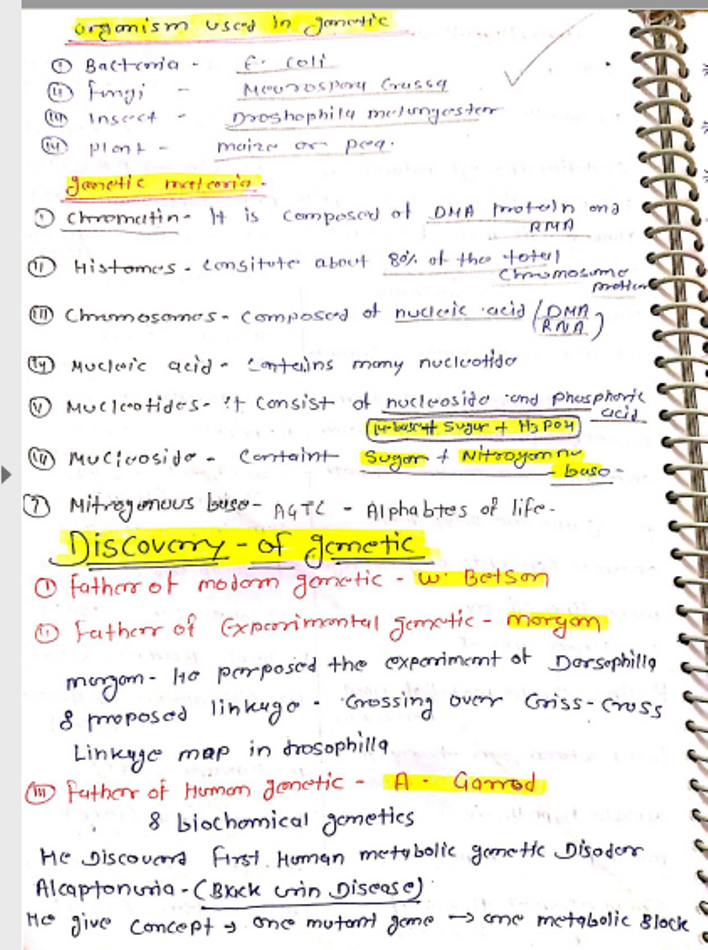 organism used in genetic
(i) Bacteria - E. coli
(ii) fungi - Neurospora Crassa
(iii) Insect - Droshophila melangaster
(iv) plant - maize or pea.
genetic material -
(i) Chromatin - It is composed of DNA protein and
RNA
(ii) Histones - consitute about 80% of the total
Chromosome
protien
(iii) Chromosomes - composed of nucleic acid (DNA
RNA)
(iv) Nucleic acid - contains many nucleotide
(v) Nucleotides - it consist of nucleoside and phosphoric
acid
N-base + Sugar + H3PO4
(vi) Nucleoside - Containt Sugar + Nitrogen
base -
(7) Nitrogenous base - AGTC - Alphabtes of life -
Discovery - of genetic
(i) father of modern genetic - W. Betson
(ii) Father of Experimental genetic - morgan
morgan - He perposed the experiment of Dorsophilla
& proposed linkage - Crossing over Criss-cross
Linkage map in drosophilla
(iii) father of Human genetic - A. Garrod
& biochemical genetics
He Discoverd First Human metabolic genetic Disoder
Alcaptonuria - (Black urin Disease)
He give concept → one mutant gene → one metabolic Block